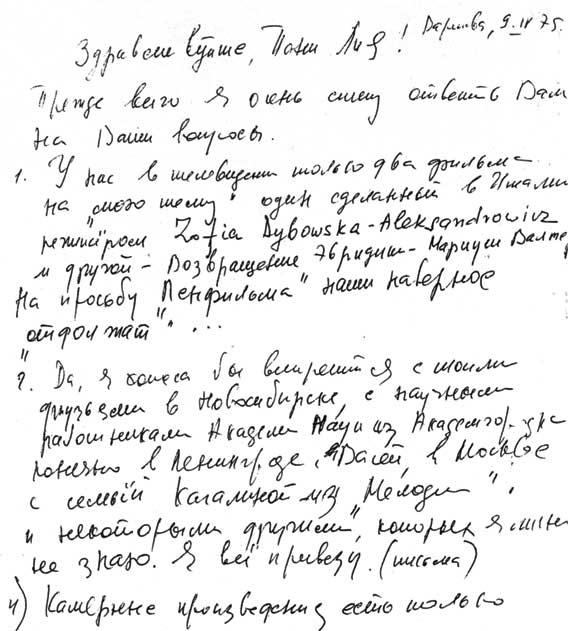 Здравствуйте, Пани Аня! Варшава, 9.IV 75.
Прежде всего я очень спешу ответить Вам
на Ваши вопросы.
1. У нас в телевидении только два фильма
на "мою тему" один сделанный в Италии
режиссером Zofia Dybowska-Aleksandrowicz
и другой - Возвращение Эвридики - Мариуш Вальтер
На просьбу "Ленфильма" наши наверное
"отфолжат" ...
2. Да, я хотела бы встретится с моими
друзьями в Новосибирске, с научными
работниками Академии Наук из Академгородка
конечно в Ленинграде, с Вами, в Москве
с семьёй Качалиной из "Мелодии",
и некоторыми друзьями, которых я лично
не знаю. Я всё привезу. (письма)
4) Камерные произведения есть только